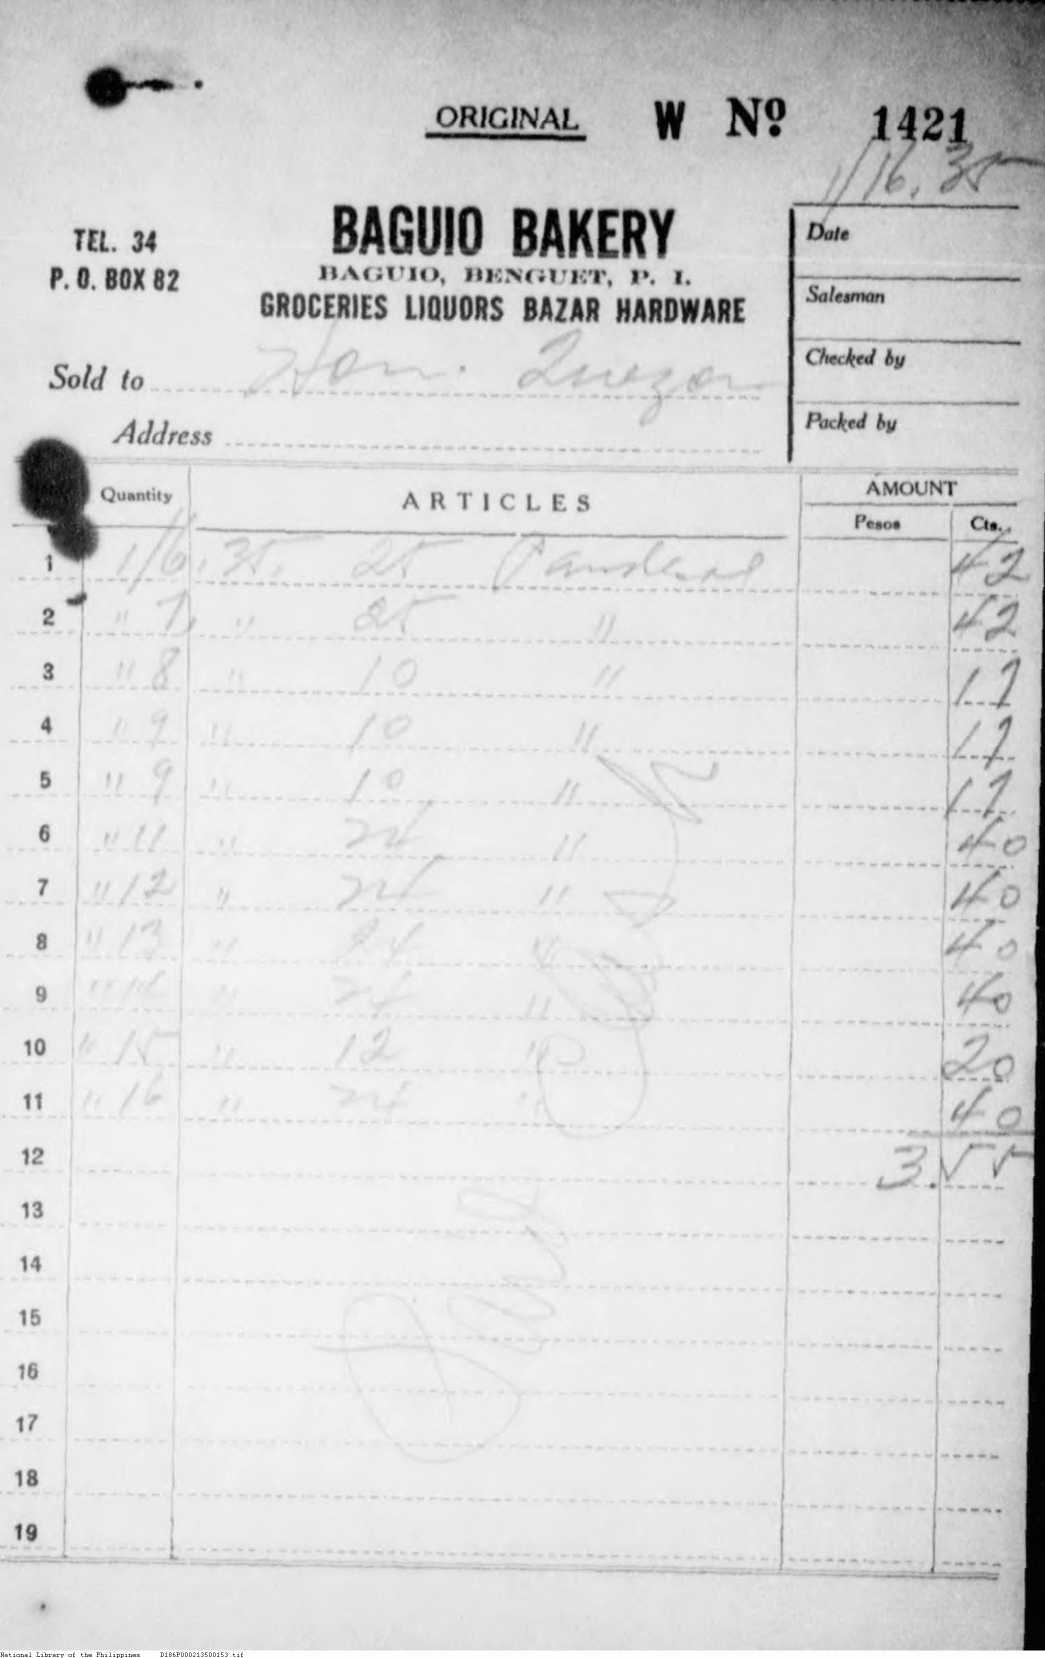 ORIGINAL W Nº 1421
1/16.35
TEL. 34
P. O. BOX 82
BAGUIO BAKERY
BAGUIO, BENGUET, P. I.
GROCERIES LIQUORS BAZAR HARDWARE
Date
Salesman
Checked by
Packed by
Sold to Hon. Quezon
Address
Quantity ARTICLES AMOUNT
Pesos Cts.
1 1/6.35. 25 Pandesal 42
2 " 7, " 25 " 42
3 " 8 " 10 " 17
4 " 9 " 10 " 17
5 " 9 " 10 " 17
6 " 11 " 24 " 40
7 " 12 " 24 " 40
8 " 13 " 24 " 40
9 " 14 " 24 " 40
10 " 15 " 12 " 20
11 " 16 " 24 " 40
12 3.55
13
14
15
16
17
18
19
Paid
National Library of the Philippines D186P000213500153.tif